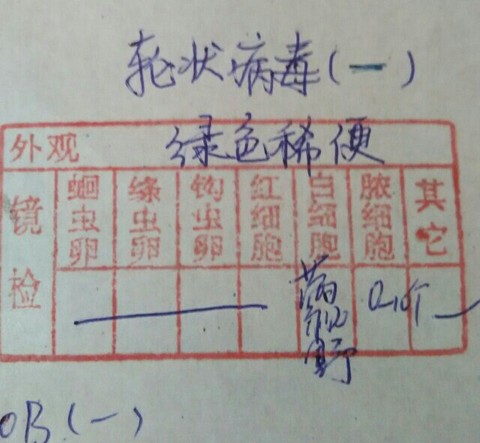 轮状病毒(一)
外观 绿色稀便
镜检 蛔虫卵 绦虫卵 钩虫卵 红细胞 白细胞 脓细胞 其它
OB(一)